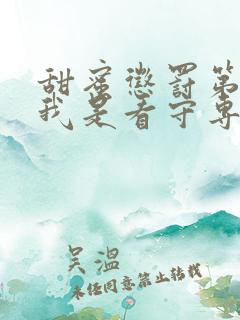 甜蜜懲罰第
我是看守專
吴温
未经同意禁止转载